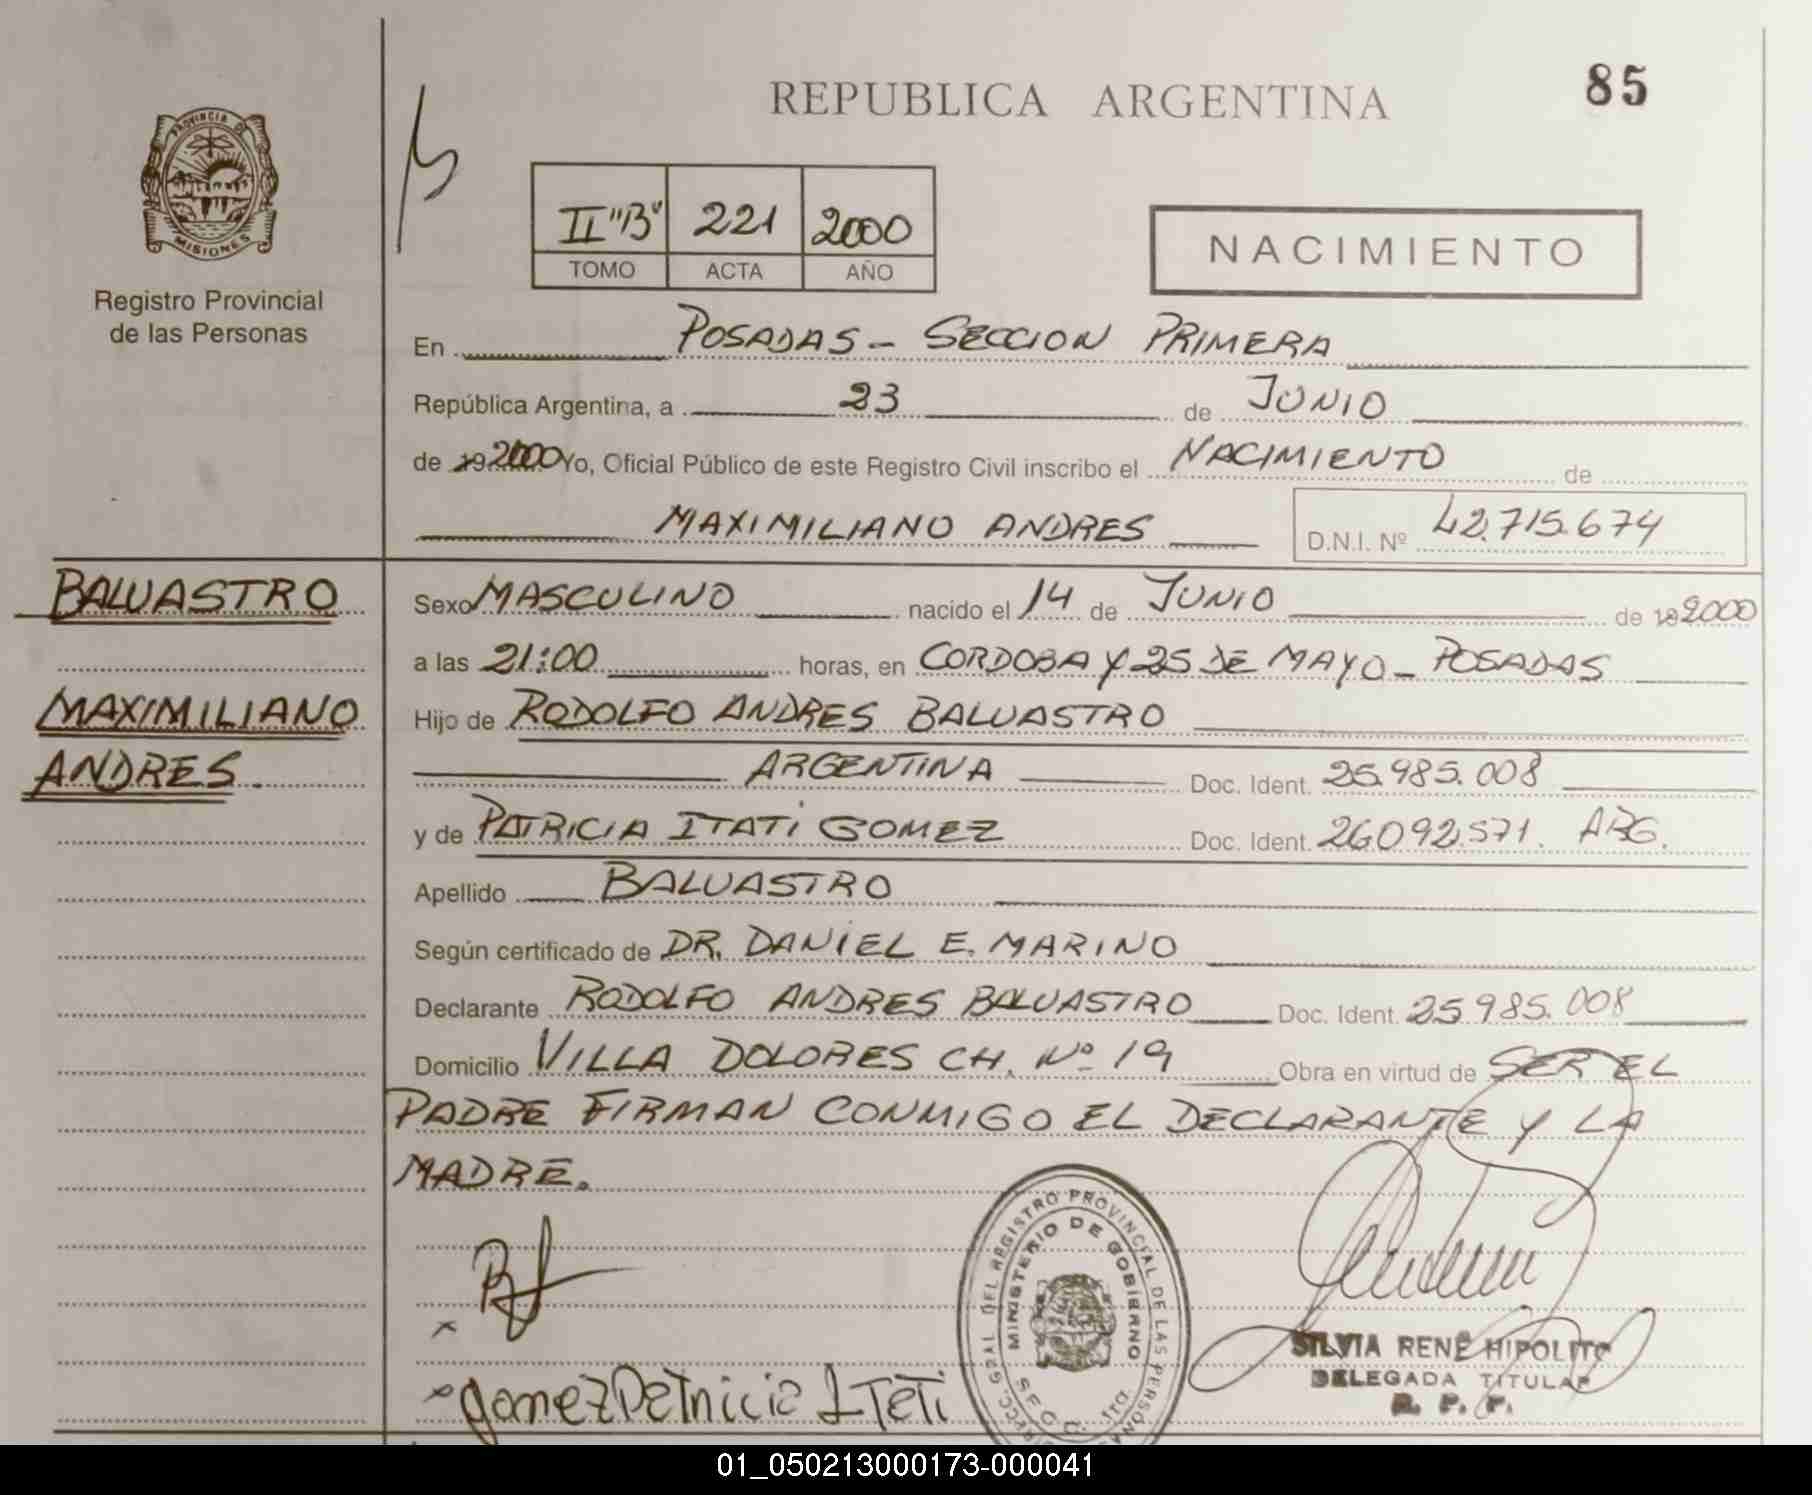 REPUBLICA ARGENTINA
85
PROVINCIA DE
MISIONES
Registro Provincial
de las Personas
II "B" 221 2000
TOMO ACTA AÑO
NACIMIENTO
En POSADAS - SECCION PRIMERA
República Argentina, a 23 de JUNIO
de 19 2000 Yo, Oficial Público de este Registro Civil inscribo el NACIMIENTO de
MAXIMILIANO ANDRES D.N.I. Nº 42.715.674
BALUASTRO
MAXIMILIANO
ANDRES.
Sexo MASCULINO nacido el 14 de JUNIO de 2000
a las 21:00 horas, en CORDOBA Y 25 DE MAYO - POSADAS
Hijo de RODOLFO ANDRES BALUASTRO
ARGENTINA Doc. Ident. 25.985.008
y de PATRICIA ITATI GOMEZ Doc. Ident. 26.092.571. ARG.
Apellido BALUASTRO
Según certificado de DR. DANIEL E. MARINO
Declarante RODOLFO ANDRES BALUASTRO Doc. Ident. 25.985.008
Domicilio VILLA DOLORES CH. Nº 19 Obra en virtud de SER EL
PADRE FIRMAN CONMIGO EL DECLARANTE Y LA
MADRE.
GRAL DEL REGISTRO PROVINCIAL DE LAS PERSONAS
MINISTERIO DE GOBIERNO
SILVIA RENÉ HIPOLITO
DELEGADA TITULAR
R. P. P.
Gomez Patricia Itati
01_050213000173-000041